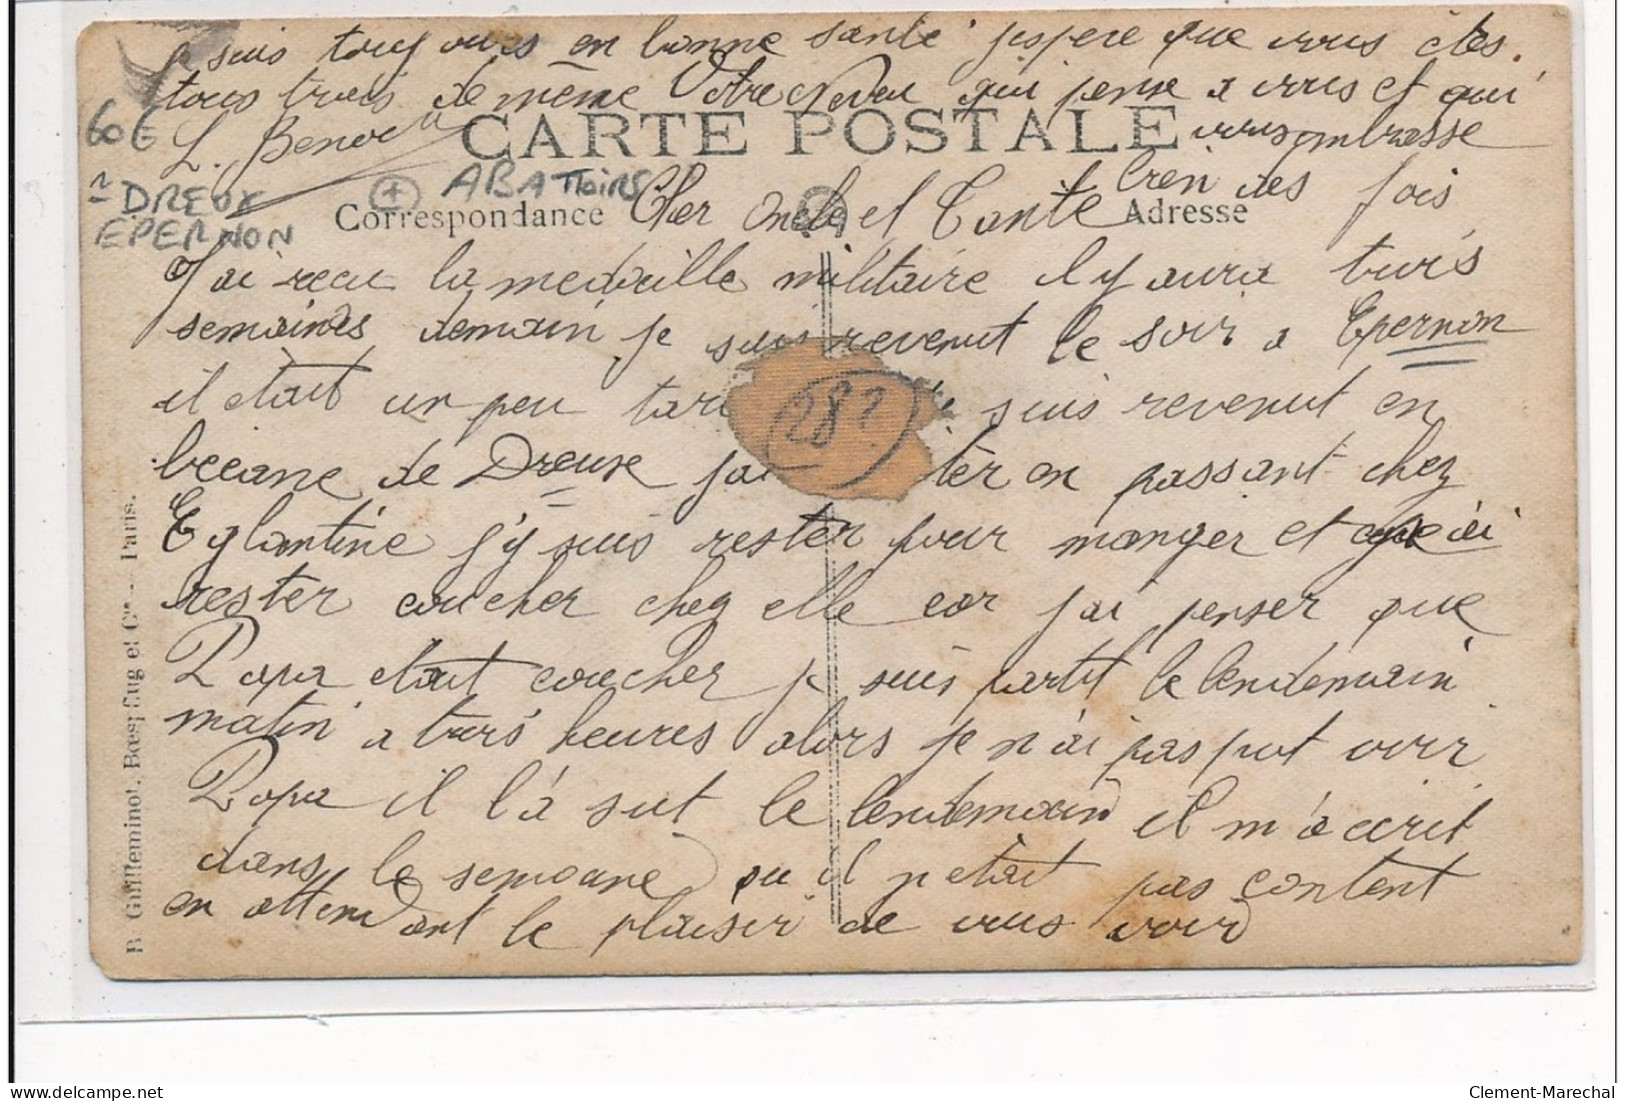 je suis toujours en bonne santé j'espere que vous êtes
tous trois de même Votre Neveu qui pense a vous et qui
vous embrasse
L. Benoit
bien des fois
60€
DREUX
EPERNON
ABATTOIRS
CARTE POSTALE
Correspondance
Adresse
Cher Oncle et Tante
J'ai recu la medaille militaire il y aura trois
semaines demain je suis revenut le soir a Epernon
il etait un peu tard suis revenut en
becane de Dreux j'ai en passant chez
Eglantine j'y suis rester pour manger et
rester coucher chez elle car j'ai penser que
Papa etait coucher je suis partit le lendemain
matin a trois heures alors je n'ai pas put voir
Papa il l'a sut le lendemain il m'a ecrit
dans le semaine qu'il n'etait pas content
en attendant le plaisir de vous voir
282
R. Guilleminot, Bœspflug et Cie - Paris.
Clement-Marechal